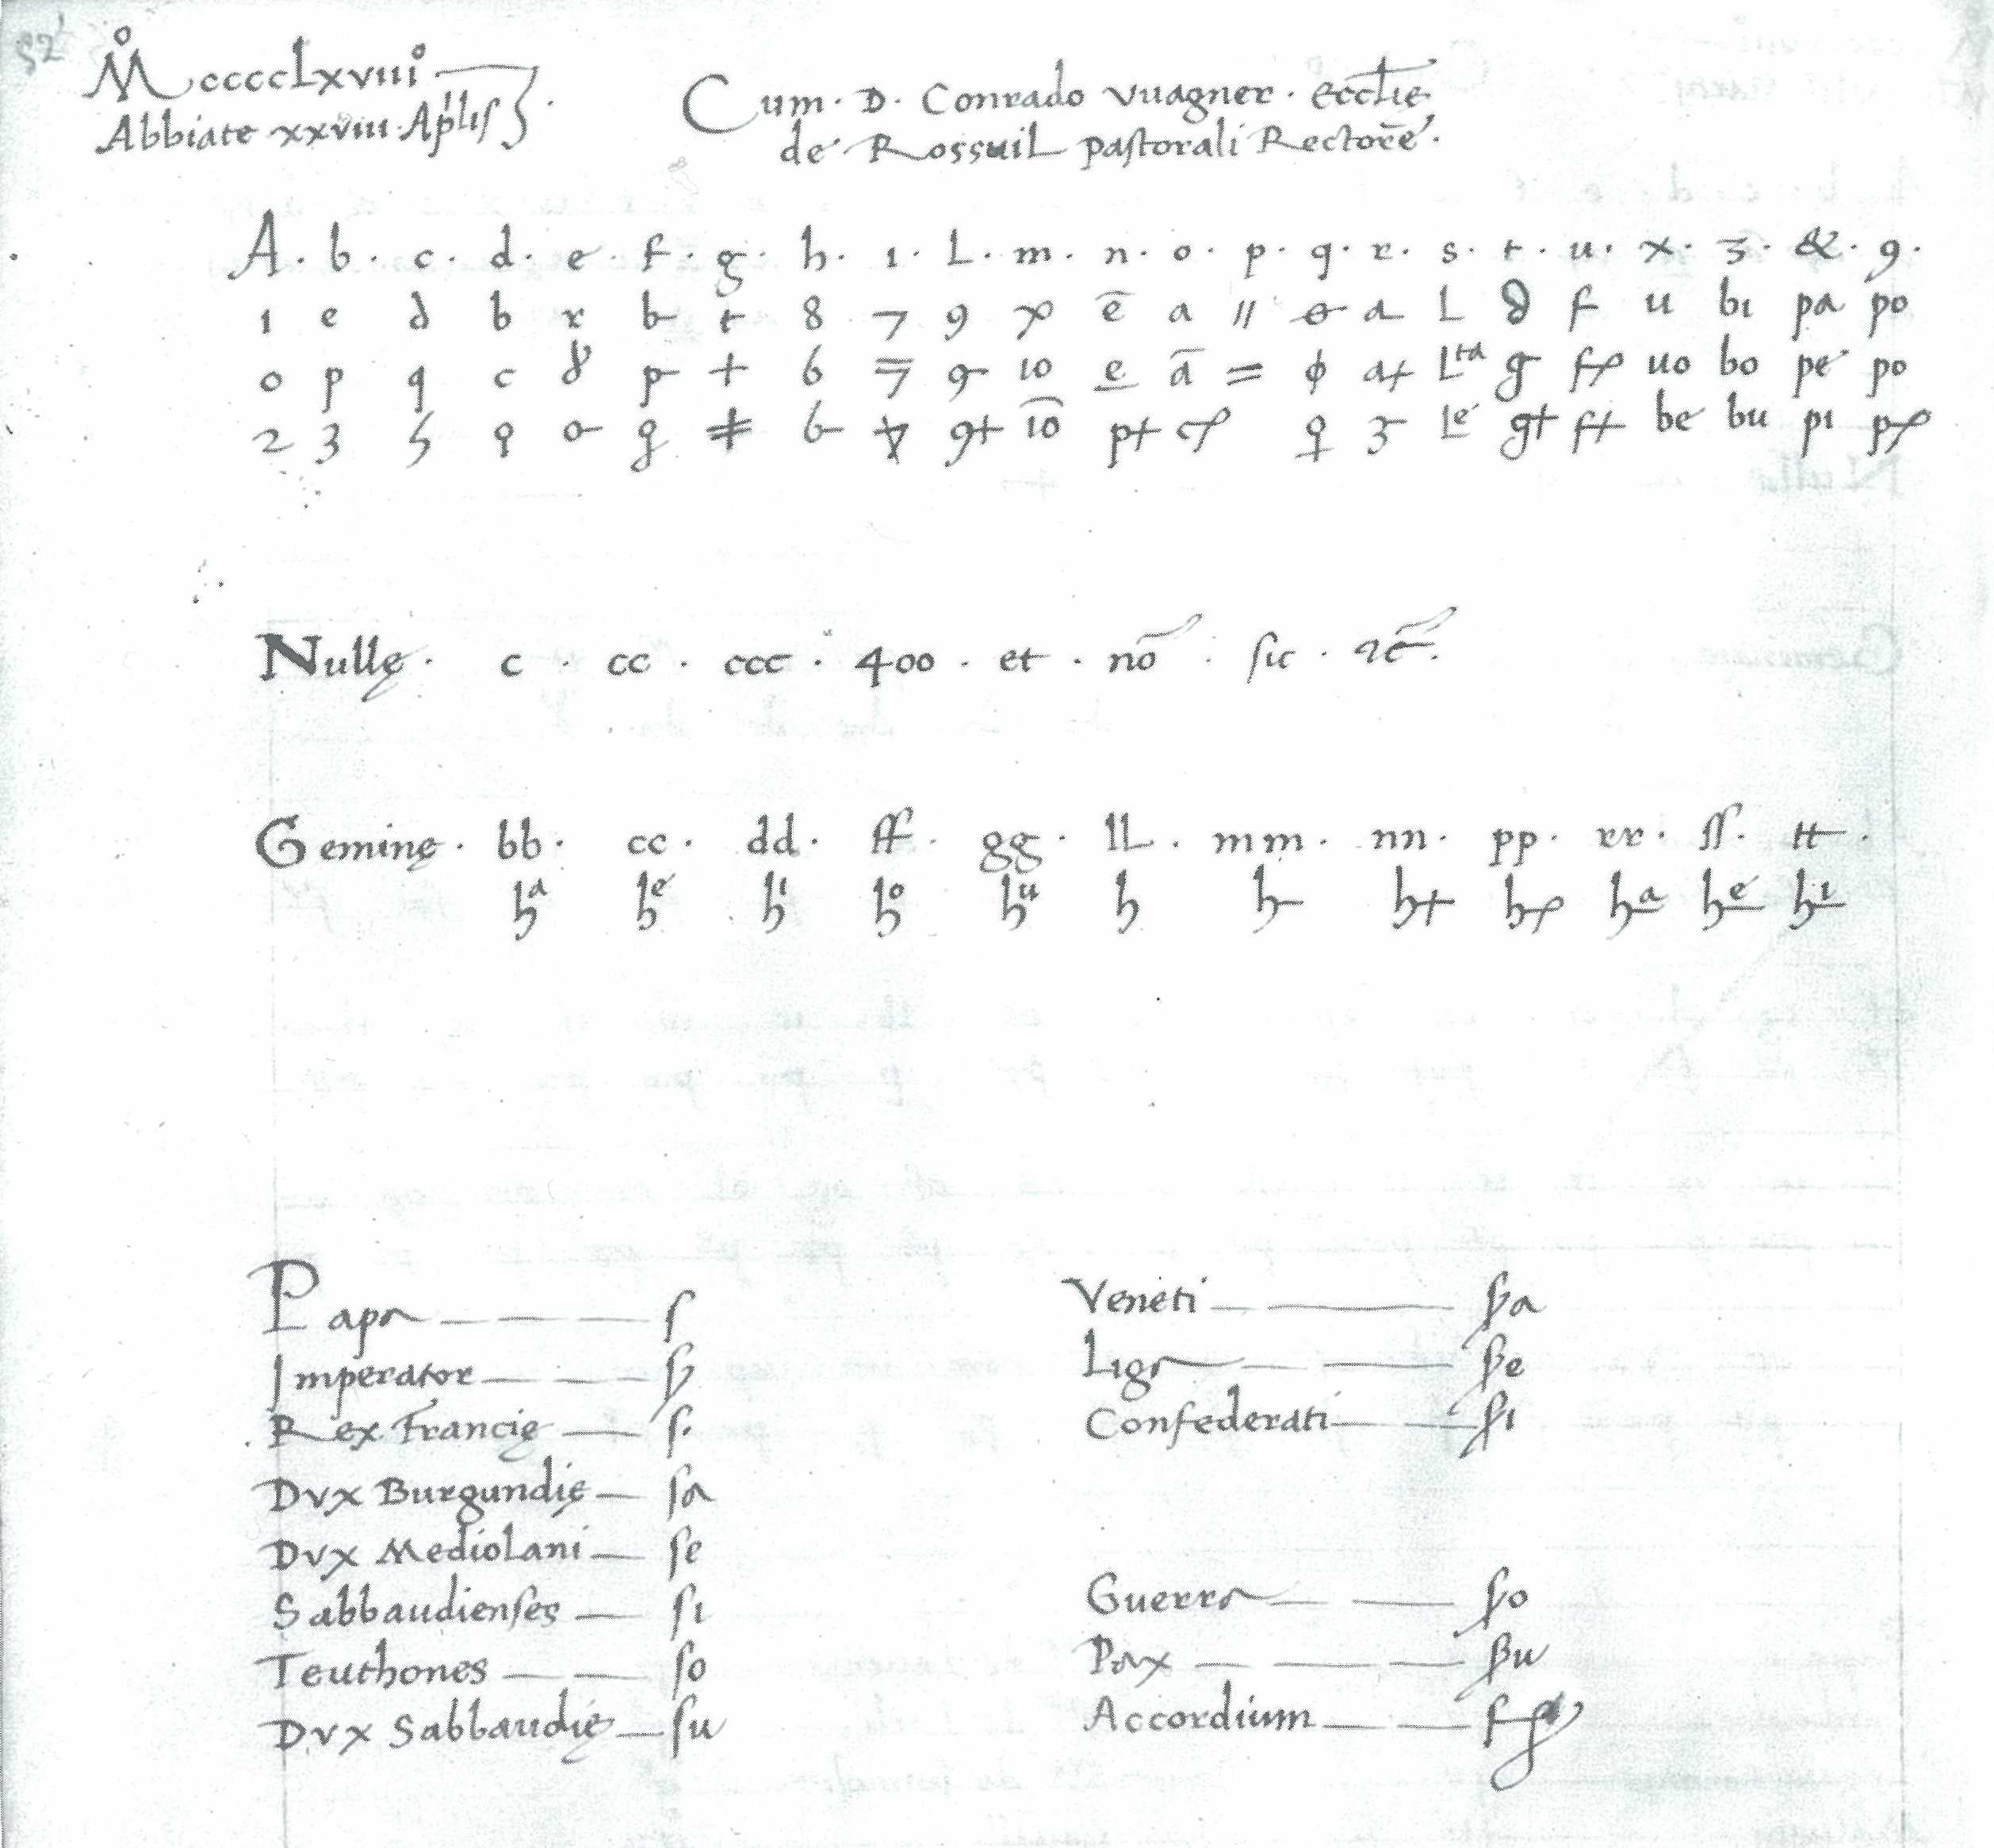 52
MccccLxviii
Abbiate xxviii Aplis
Cum · D · Conrado Vuagner · Ecclie
de Rossuil pastorali Rectore
A · b · c · d · e · f · g · h · i · L · m · n · o · p · q · r · s · t · u · x · z · & · 9 ·
1 e d b r b t 8 7 9 ē a // L f u bi pa po
o p q c p + 6 9 10 e ā = ϕ Lta g uo bo pe po
2 3 ≠ 9+ 10 p+ Le g+ f+ be bu pi
Nullę · c · cc · ccc · 400 · et · nō · sic ·
Geminę · bb · cc · dd · ff · gg · lL · mm · nn · pp · rr · ſſ · tt ·
ha he hi ho hu h h h+ ha he hi
Papa ſ
Imperator
Rex Francię ſ·
Dvx Burgundię ſa
Dvx MedioLani ſe
Sabbaudienſes ſi
Teuthones ſo
Dvx Sabbaudię ſu
Veneti ꞩa
Liga ꞩe
Confederati ꞩi
Guerra ꞩo
Pax ꞩu
Accordium